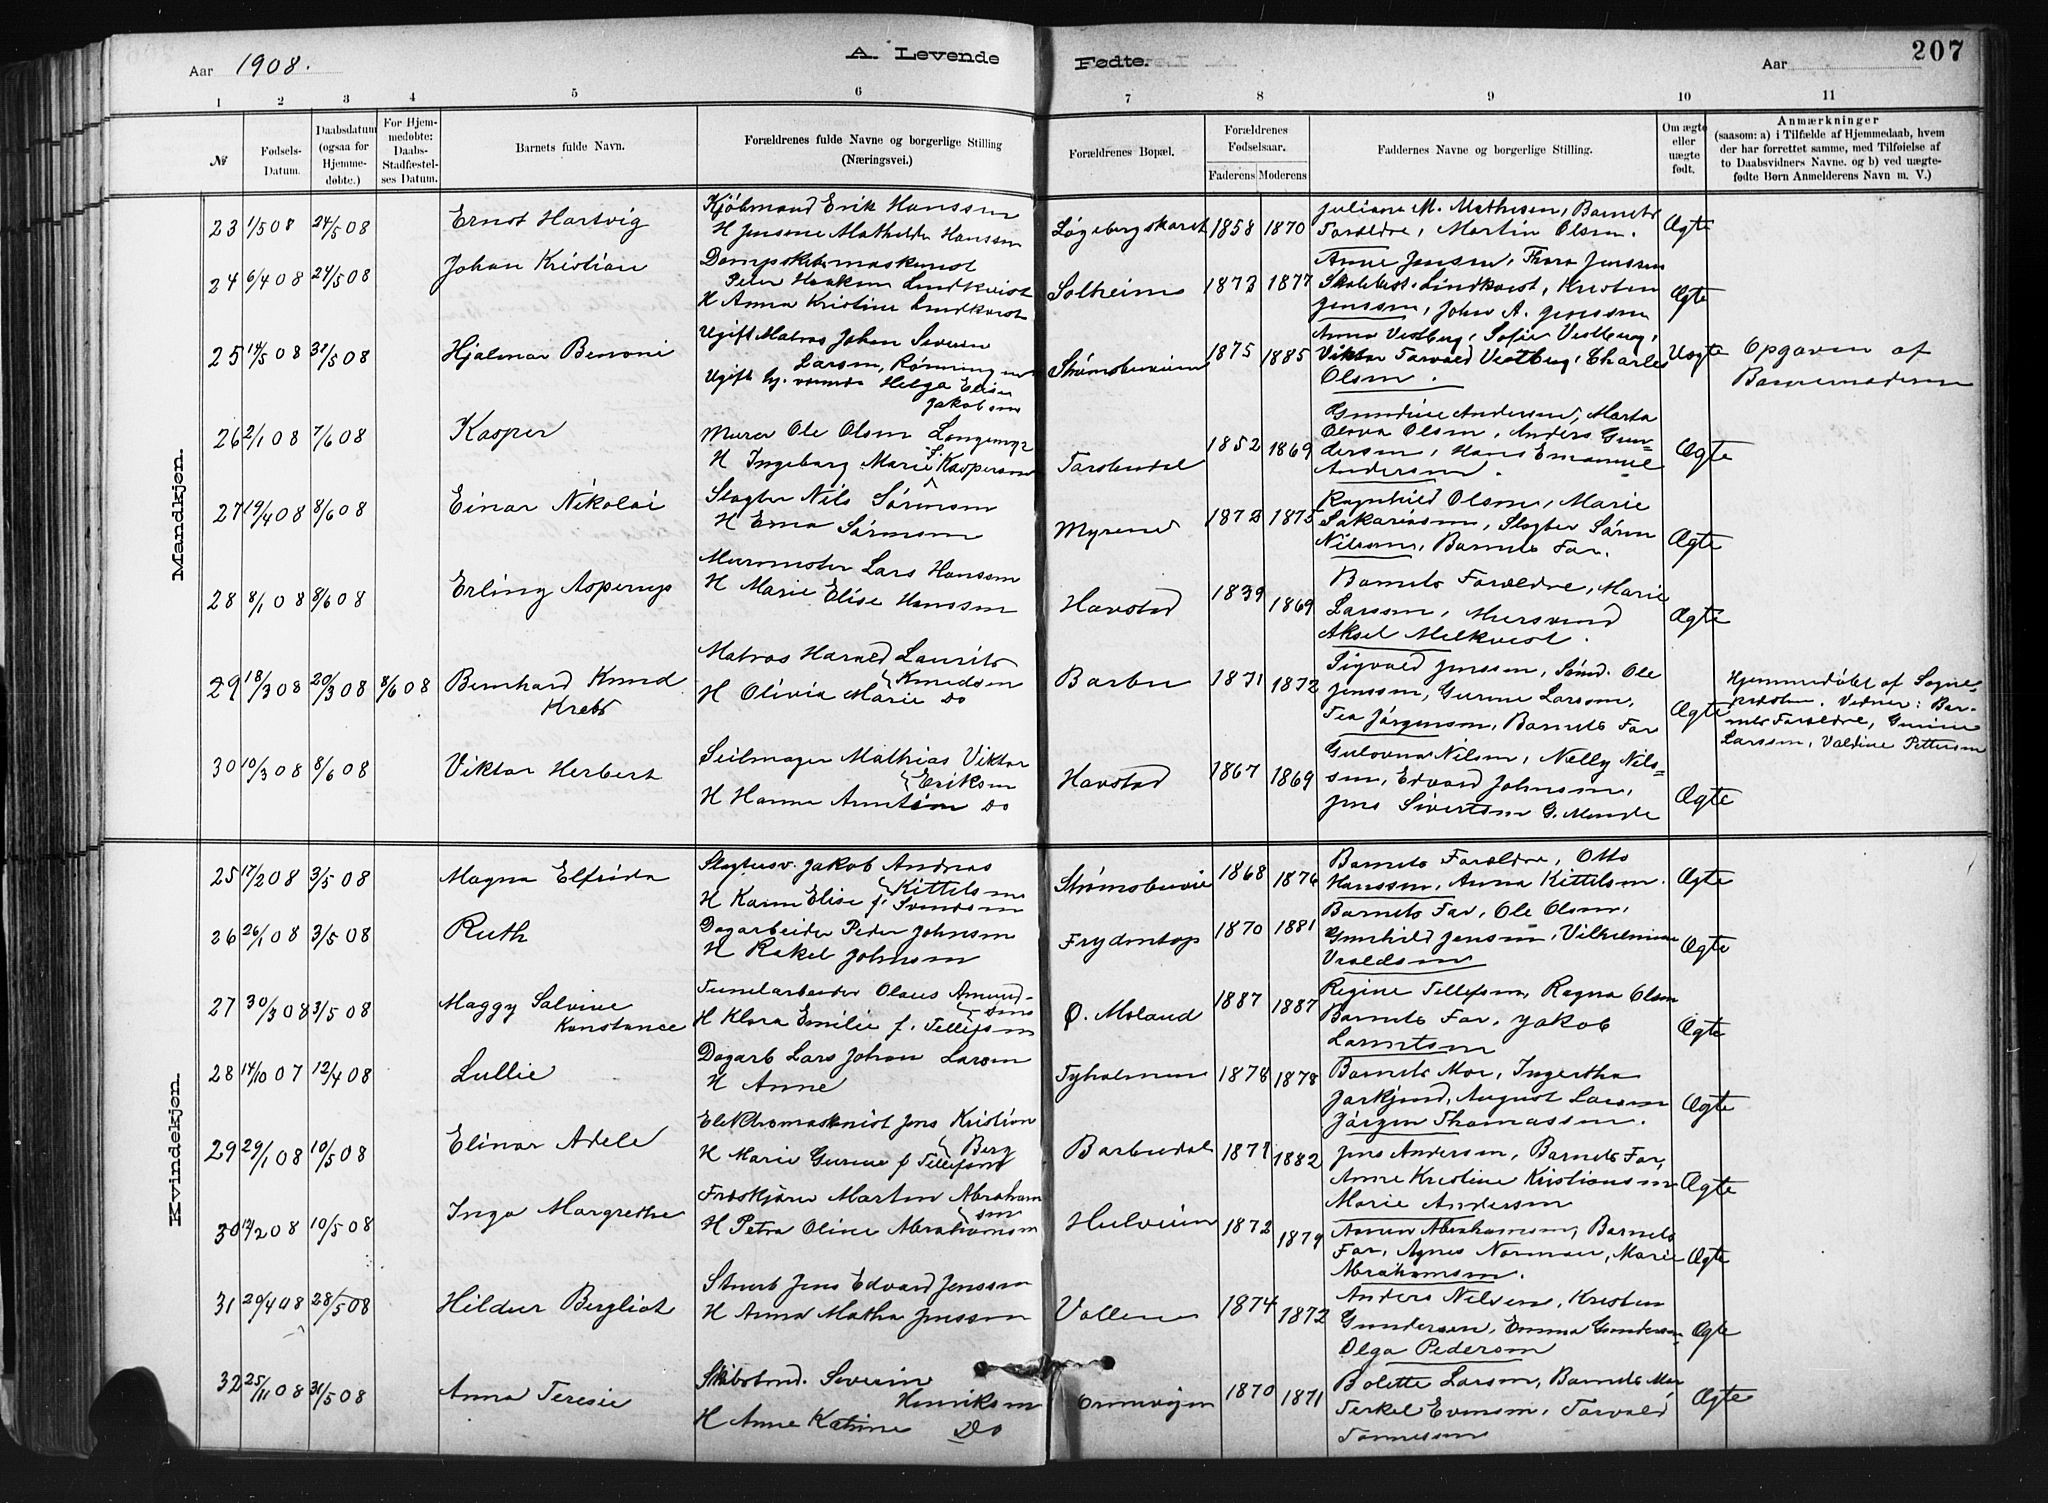 Aar 1908. A. Levende Fødte. Aar 207
1 2 3 4 5 6 7 8 9 10 11
№ Fødsels-Datum. Daabsdatum (ogsaa for Hjemmedøbte.) For Hjemmedøbte: Daabs-Stadfæstelses Datum. Barnets fulde Navn. Forældrenes fulde Navne og borgerlige Stilling (Næringsvei.) Forældrenes Bopæl. Forældrenes Fødselsaar. Faderens Moderens Faddernes Navne og borgerlige Stilling. Om ægte eller uægte født. Anmærkninger (saasom: a) i Tilfælde af Hjemmedaab, hvem der har forrettet samme, med Tilføielse af to Daabsvidners Navne. og b) ved uægtefødte Børn Anmelderens Navn m. V.)
Mandkjøn.
23 1/5 08 24/5 08 Ernst Hartvig Kjøbmand Erik Hanssen
H Jensine Mathilde Hanssen 1858 1870 Juliane M. Mathisen, Barnets
Forældre, Martin Olsen. Ægte
24 6/4 08 24/5 08 Johan Kristian Dampskibsmaskinist
Peter Haakon Lindkvist
H Anna Kristine Lindkvist Solheim 1873 1877 Anne Jensen, Thora Jenssen
Lindkvist, Kristen
Jenssen, John A. Jenssen Ægte
25 14/5 08 31/5 08 Hjalmar Benoni Ugift Matros Johan Severin
Larsen, Rønningen
Ugift Helga Elise
Jakobsen 1875 1885 Anna Vestberg, Sofie Vestberg,
Viktor Torvald Vestberg, Charles
Olsen. Uægte Opgaven af
Barnemoderen
26 2/1 08 7/6 08 Kasper Murer Ole Olsen Langemyr
H Ingeborg Marie f. Kaspersen Torsbudal 1852 1869 Gundine Andersen, Marta
Olava Olsen, Anders Gun-
dersen, Hans Emanuel
Andersen. Ægte
27 19/4 08 8/6 08 Einar Nikolai Slagter Nils Sørensen
H Erna Sørensen Myrene 1873 1875 Ragnhild Olsen, Marie
Sakariassen, Slagter Søren
Nilssen, Barnets Far. Ægte
28 8/1 08 8/6 08 Erling Asperup Murmester Lars Hanssen
H Marie Elise Hanssen Havstad 1839 1869 Barnets Forældre, Marie
Larssen, Mursvend
Aksel Melkvist. Ægte
29 18/3 08 20/3 08 8/6 08 Bernhard Knud
Krebs Matros Harald Laurits
Knudsen
H Olivia Marie Do Barbu 1871 1872 Sigvald Jenssen, Sømd. Ole
Jenssen, Gurine Larsen,
Tea Jørgensen, Barnets Far Ægte Hjemmedøbt af Sogne-
presten. Vidner: Bar-
nets Forældre, Gurine
Larssen, Valdine Pettersen
30 10/3 08 8/6 08 Viktor Herbert Seilmager Mathias Viktor
Eriksen
H Hanna Do Havstad 1867 1869 Nilsen, Nelly Nils-
sen, Edvard Johnsen,
Jens Sivertsen G. Ægte
Kvindekjøn.
25 17/2 08 3/5 08 Magna Elfrida Slagtersv. Jakob Andreas
Kittelsen
H Karen Elise f. Svendsen 1868 1876 Barnets Forældre, Otto
Hanssen, Anna Kittelsen. Ægte
26 26/1 08 3/5 08 Ruth Dagarbeider Peder Johnsen
H Rakel Johnsen Frydentop 1870 1881 Barnets Far, Ole Olsen,
Gunhild Jensen, Vilhelmine
Vraldsen Ægte
27 30/3 08 3/5 08 Maggy Salvine
Konstance Tunelarbeider Olaus Amund-
sen
H Klara Emilie f. Tellefsen Ø. Moland 1887 1887 Regine Tellefsen, Ragna Olsen
Barnets Far, Jakob
Lauritsen Ægte
28 14/10 07 12/4 08 Lullie Dagarb Lars Johan Larsen
H Anne Tyholmen 1878 1878 Barnets Mor, Ingertha
August Larsen
Jørgen Thomassen. Ægte
29 29/1 08 10/5 08 Elinor Adele Elektromaskinist Jens Kristian
Berg
H Marie Gurine f Tellefsen Barbudal 1882 Jens Andersen, Barnets Far,
Anne Kristine Kristiansen
Marie Andersen Ægte
30 10/5 08 Inga Margrethe Martin Abraham
sen
H Petra Oline Abrahamsen 1872 1879 Abrahamsen, Barnets
Far, Agnes Norman, Marie
Abrahamsen. Ægte
31 20/4 08 28/5 08 Hildur Bergliot Jens Edvard Jenssen
H Anna Matha Jenssen Vollen 1874 1872 Anders Nilsen, Kristen
Gundersen, Emma Gundersen
Olga Pedersen Ægte
32 25/11 08 31/5 08 Anna Teresie Skibstmd. Severin
Henriksen
H Anne Katrine Do 1870 1871 Bolette Larsen, Barnets Mor
Terkel Evensen, Torvald
Tønnessen Ægte